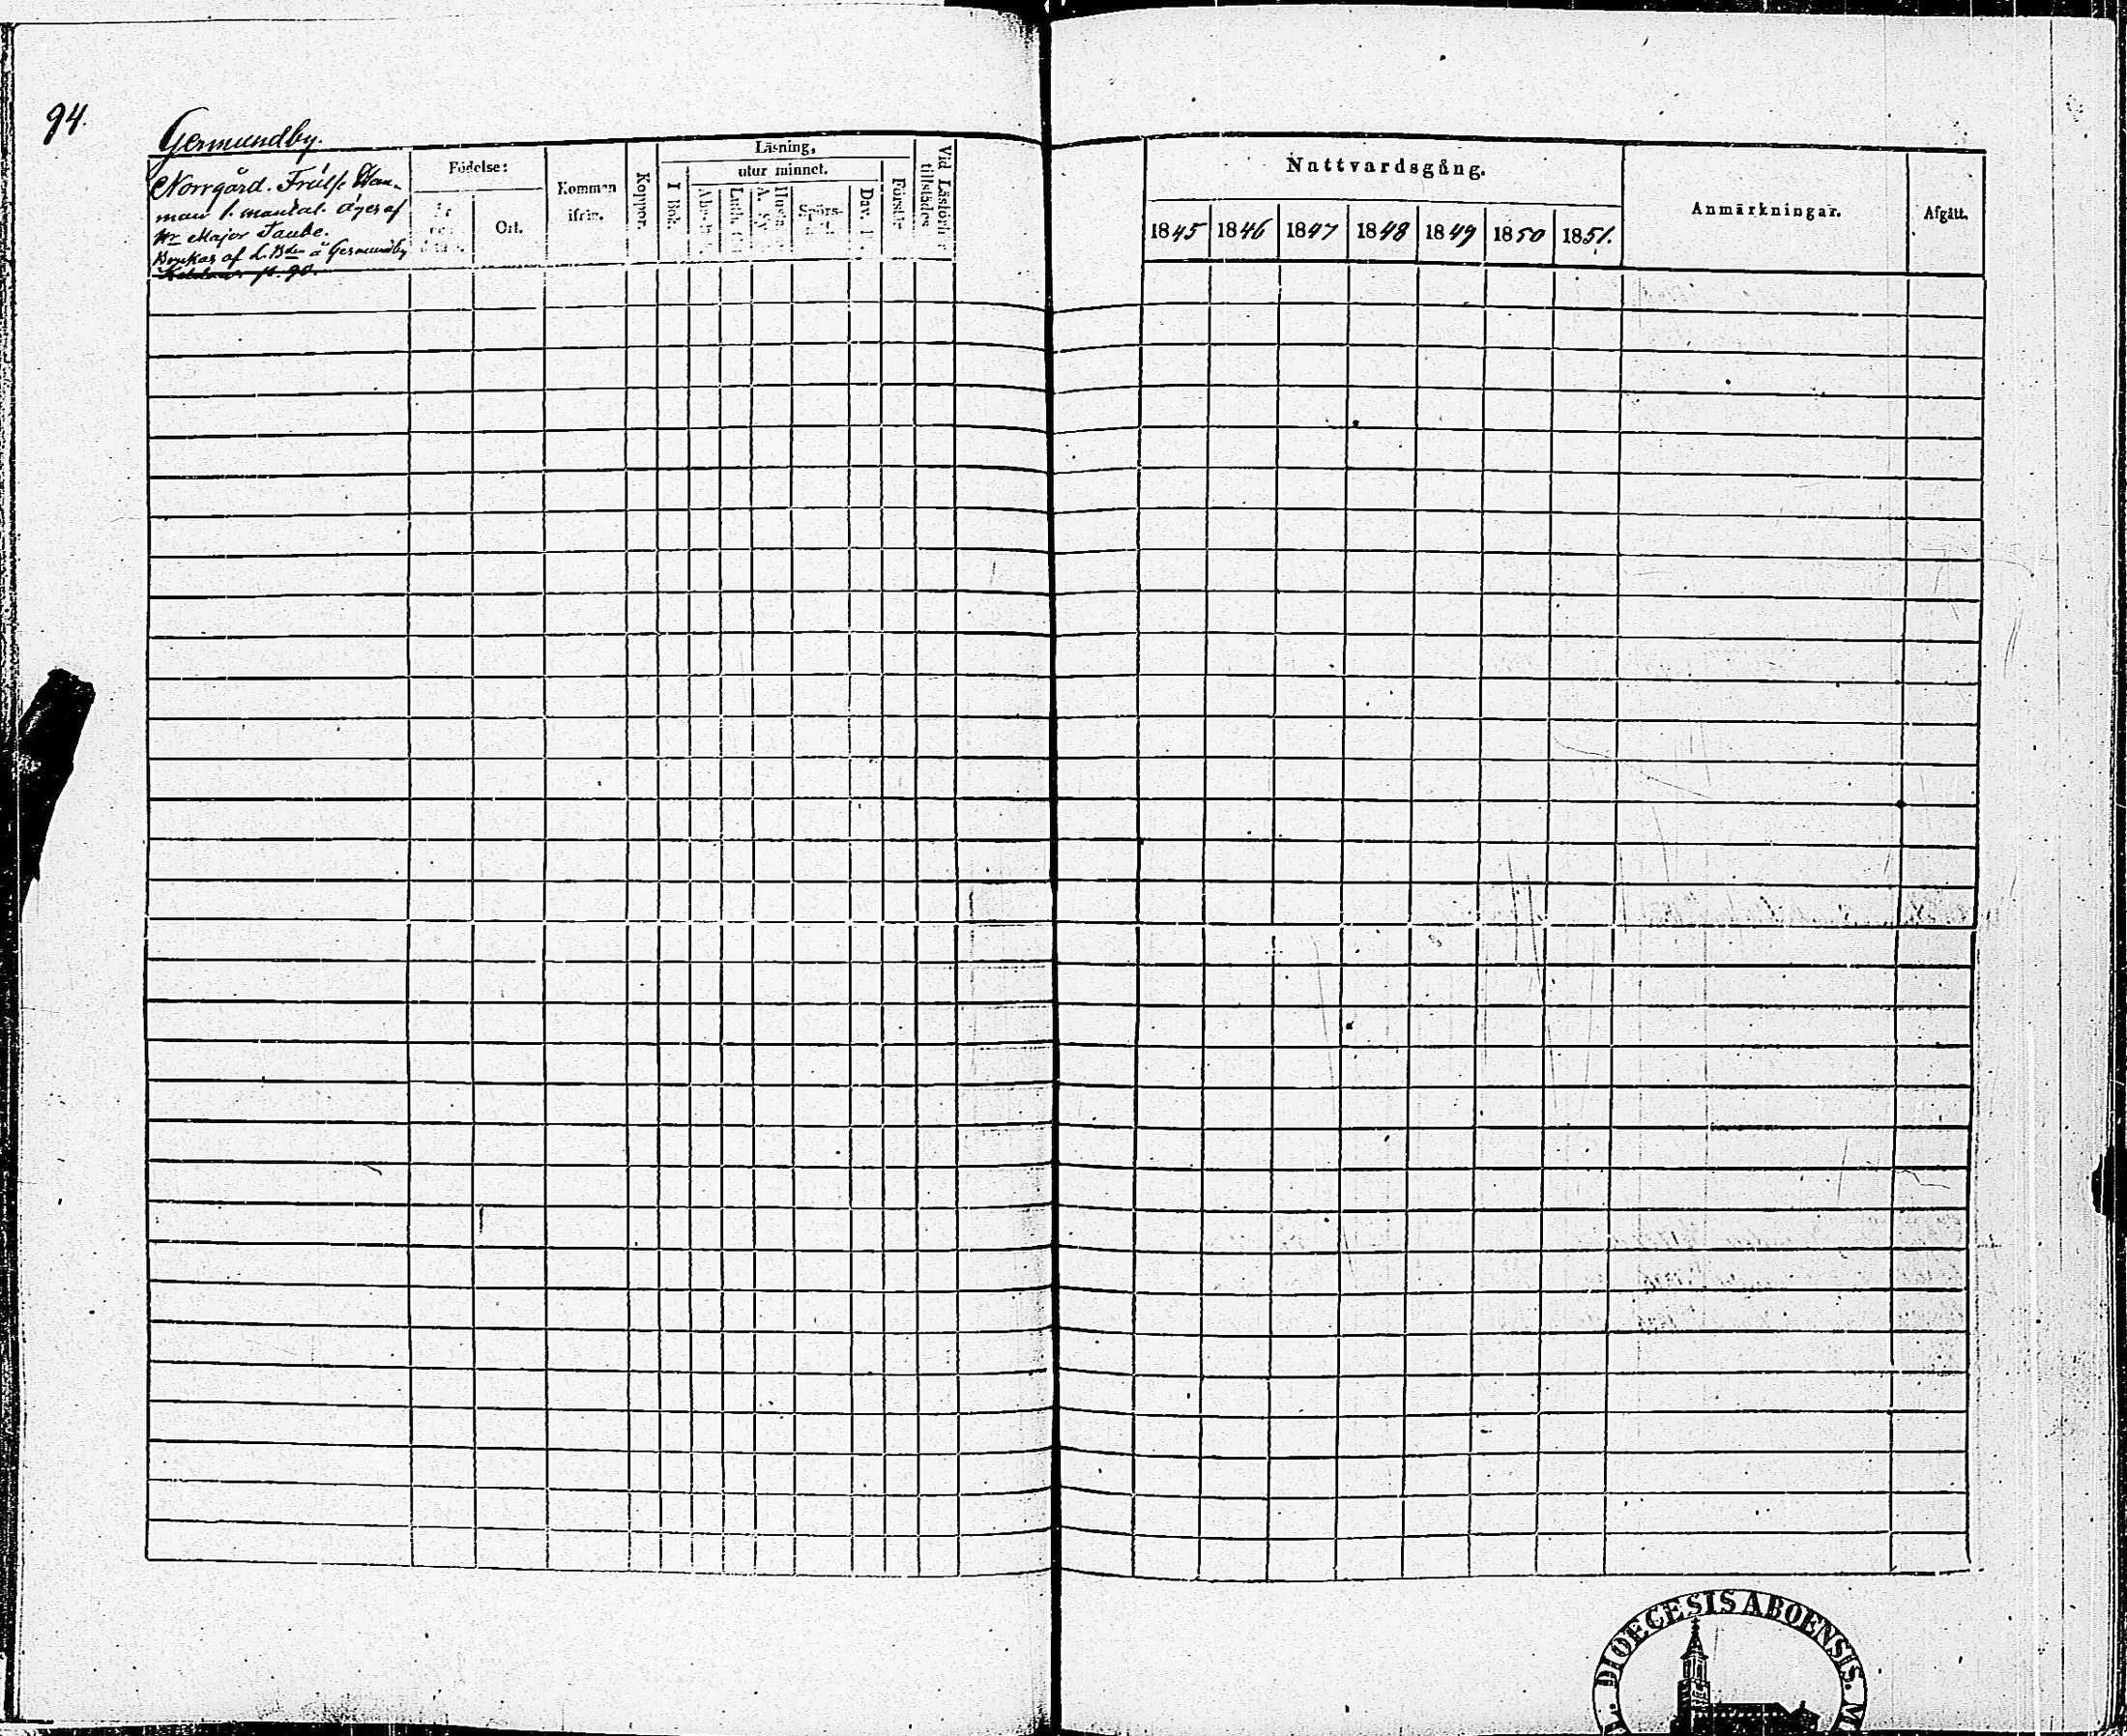 94.
Germundby.
Norrgård. Frälse Hem-
man 1. mantal. äges af
Hr Major Taube.
Brukas af L. Bdn å Germundby
p. 90.
Födelse:
Ort.
Kommen
ifrån.
Koppor.
Läsning,
utur minnet.
I Bok.
Spörs-
Förstår
Vid Läsförhör
tillstädes
Nattvardsgång.
1845 1846 1847 1848 1849 1850 1851.
Anmärkningar.
Afgått.
DIOECESIS ABOENSIS. M